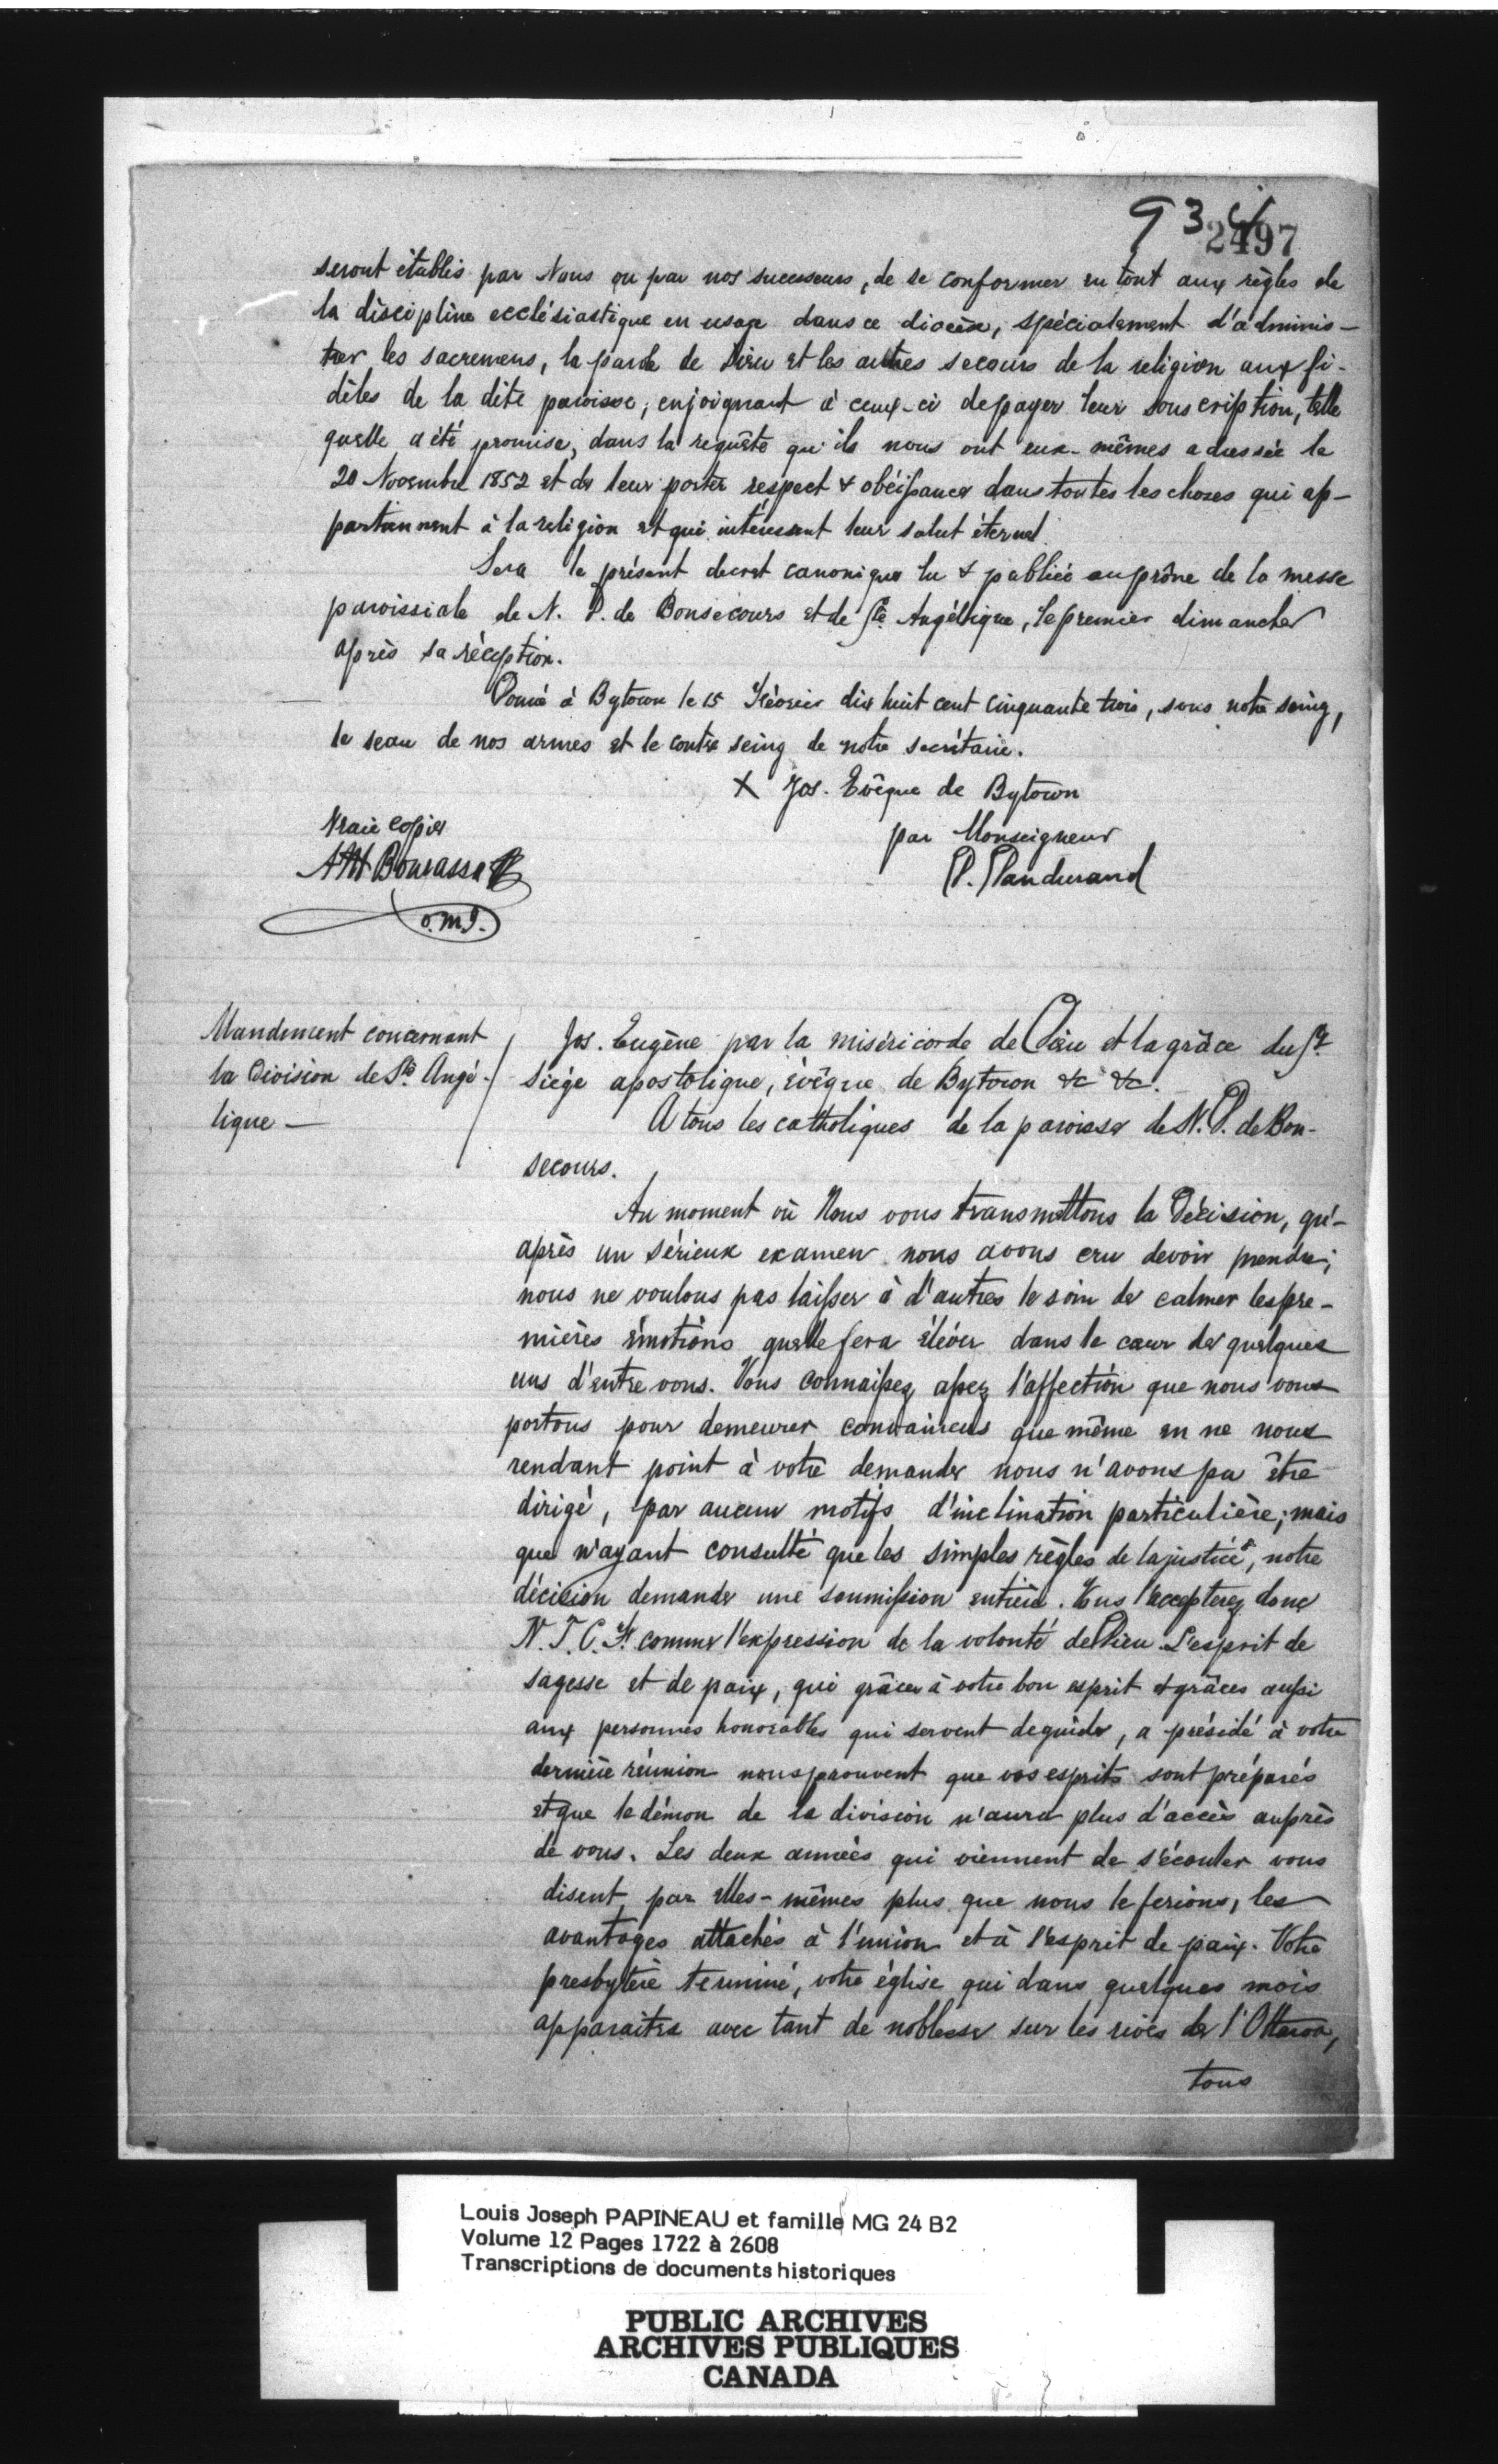 93 4
2497
seront établis par Nous ou par nos sucesseurs, de se conformer en tout aux règles de
la discipline ecclésiastique en usage dans ce diocèse, spécialement d'adminis-
trer les sacremens, la parole de Dieu et les autres secours de la religion aux fi-
dèles de la dite paroisse, enjoignant à ceux-ci de payer leur souscription, telle
quelle a été promise, dans la requête qu'ils nous ont eux-mêmes adressée le
20 Novembre 1852 et de leur porter respect & obéissance dans toutes les choses qui ap-
partiennent à la religion et qui intéressent leur salut éternel.
Sera le présent decret canonique lu & publiée au prône de la messe
paroissiale de N. D. de Bonsecours et de Ste Angélique, le premier dimanche
après sa réception.
Donné à Bytown le 15 Février dix huit cent cinquante trois, sous notre seing,
le seau de nos armes et le contre seing de notre secrétaire.
X Jos. Evêque de Bytown
par Monseigneur
D. Dandurand
Vraie copie
AM Bourassa
o.m.I.
Mandement concernant
la Division de Ste Angé-
lique —
Jos. Eugène par la miséricorde de Dieu et la grâce du St
siége apostolique, évêque de Bytown &c &c.
A tous les catholiques de la paroisse de N. D. de Bon-
secours.
Au moment où Nous vous transmettons la Décision, qu'-
après un sérieux examen nous avons cru devoir prendre;
nous ne voulons pas laisser à d'autres le soin de calmer les pre-
mières émotions quelle fera élever dans le cœur de quelques
uns d'entre vous. Vous connaissez assez l'affection que nous vous
portons pour demeurer convaincus que même en ne nous
rendant point à votre demande nous n'avons pu être
dirigé, par aucun motifs d'inclination particulière; mais
que n'ayant consulté que les simples règles de la justice, notre
décision demande une soumission entière. Vous l'accepterez donc
N. T. C. F. comme l'expression de la volonté de Dieu. L'esprit de
sagesse et de paix, qui grâces à votre bon esprit & grâces aussi
aux personnes honorables qui servent de guide, a présidé à votre
dernière réunion nous prouvent que vos esprits sont préparés
et que le démon de la division n'aura plus d'accès auprès
de vous. Les deux années qui viennent de s'écouler vous
disent par elles-mêmes plus que nous le ferions, les
avantages attachés à l'union et à l'esprit de paix. Votre
presbytère terminé, votre église qui dans quelques mois
apparaitra avec tant de noblesse sur les rives de l'Ottawa,
tous
Louis Joseph PAPINEAU et famille MG 24 B2
Volume 12 Pages 1722 à 2608
Transcriptions de documents historiques
PUBLIC ARCHIVES
ARCHIVES PUBLIQUES
CANADA